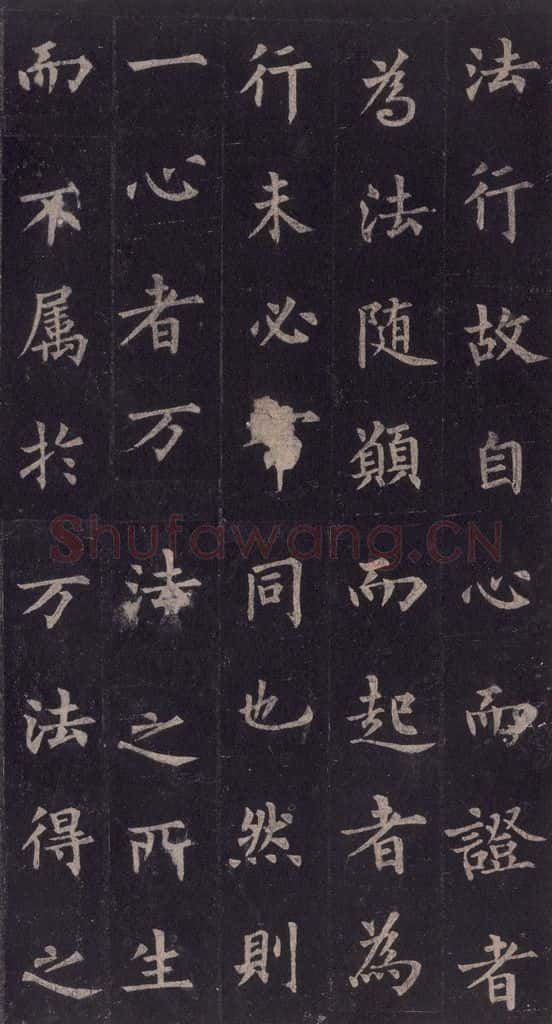 法行故自心而證者
為法随願而起者為
行未必同也然則
一心者万法之所生
而不属於万法得之
Shufawang.CN